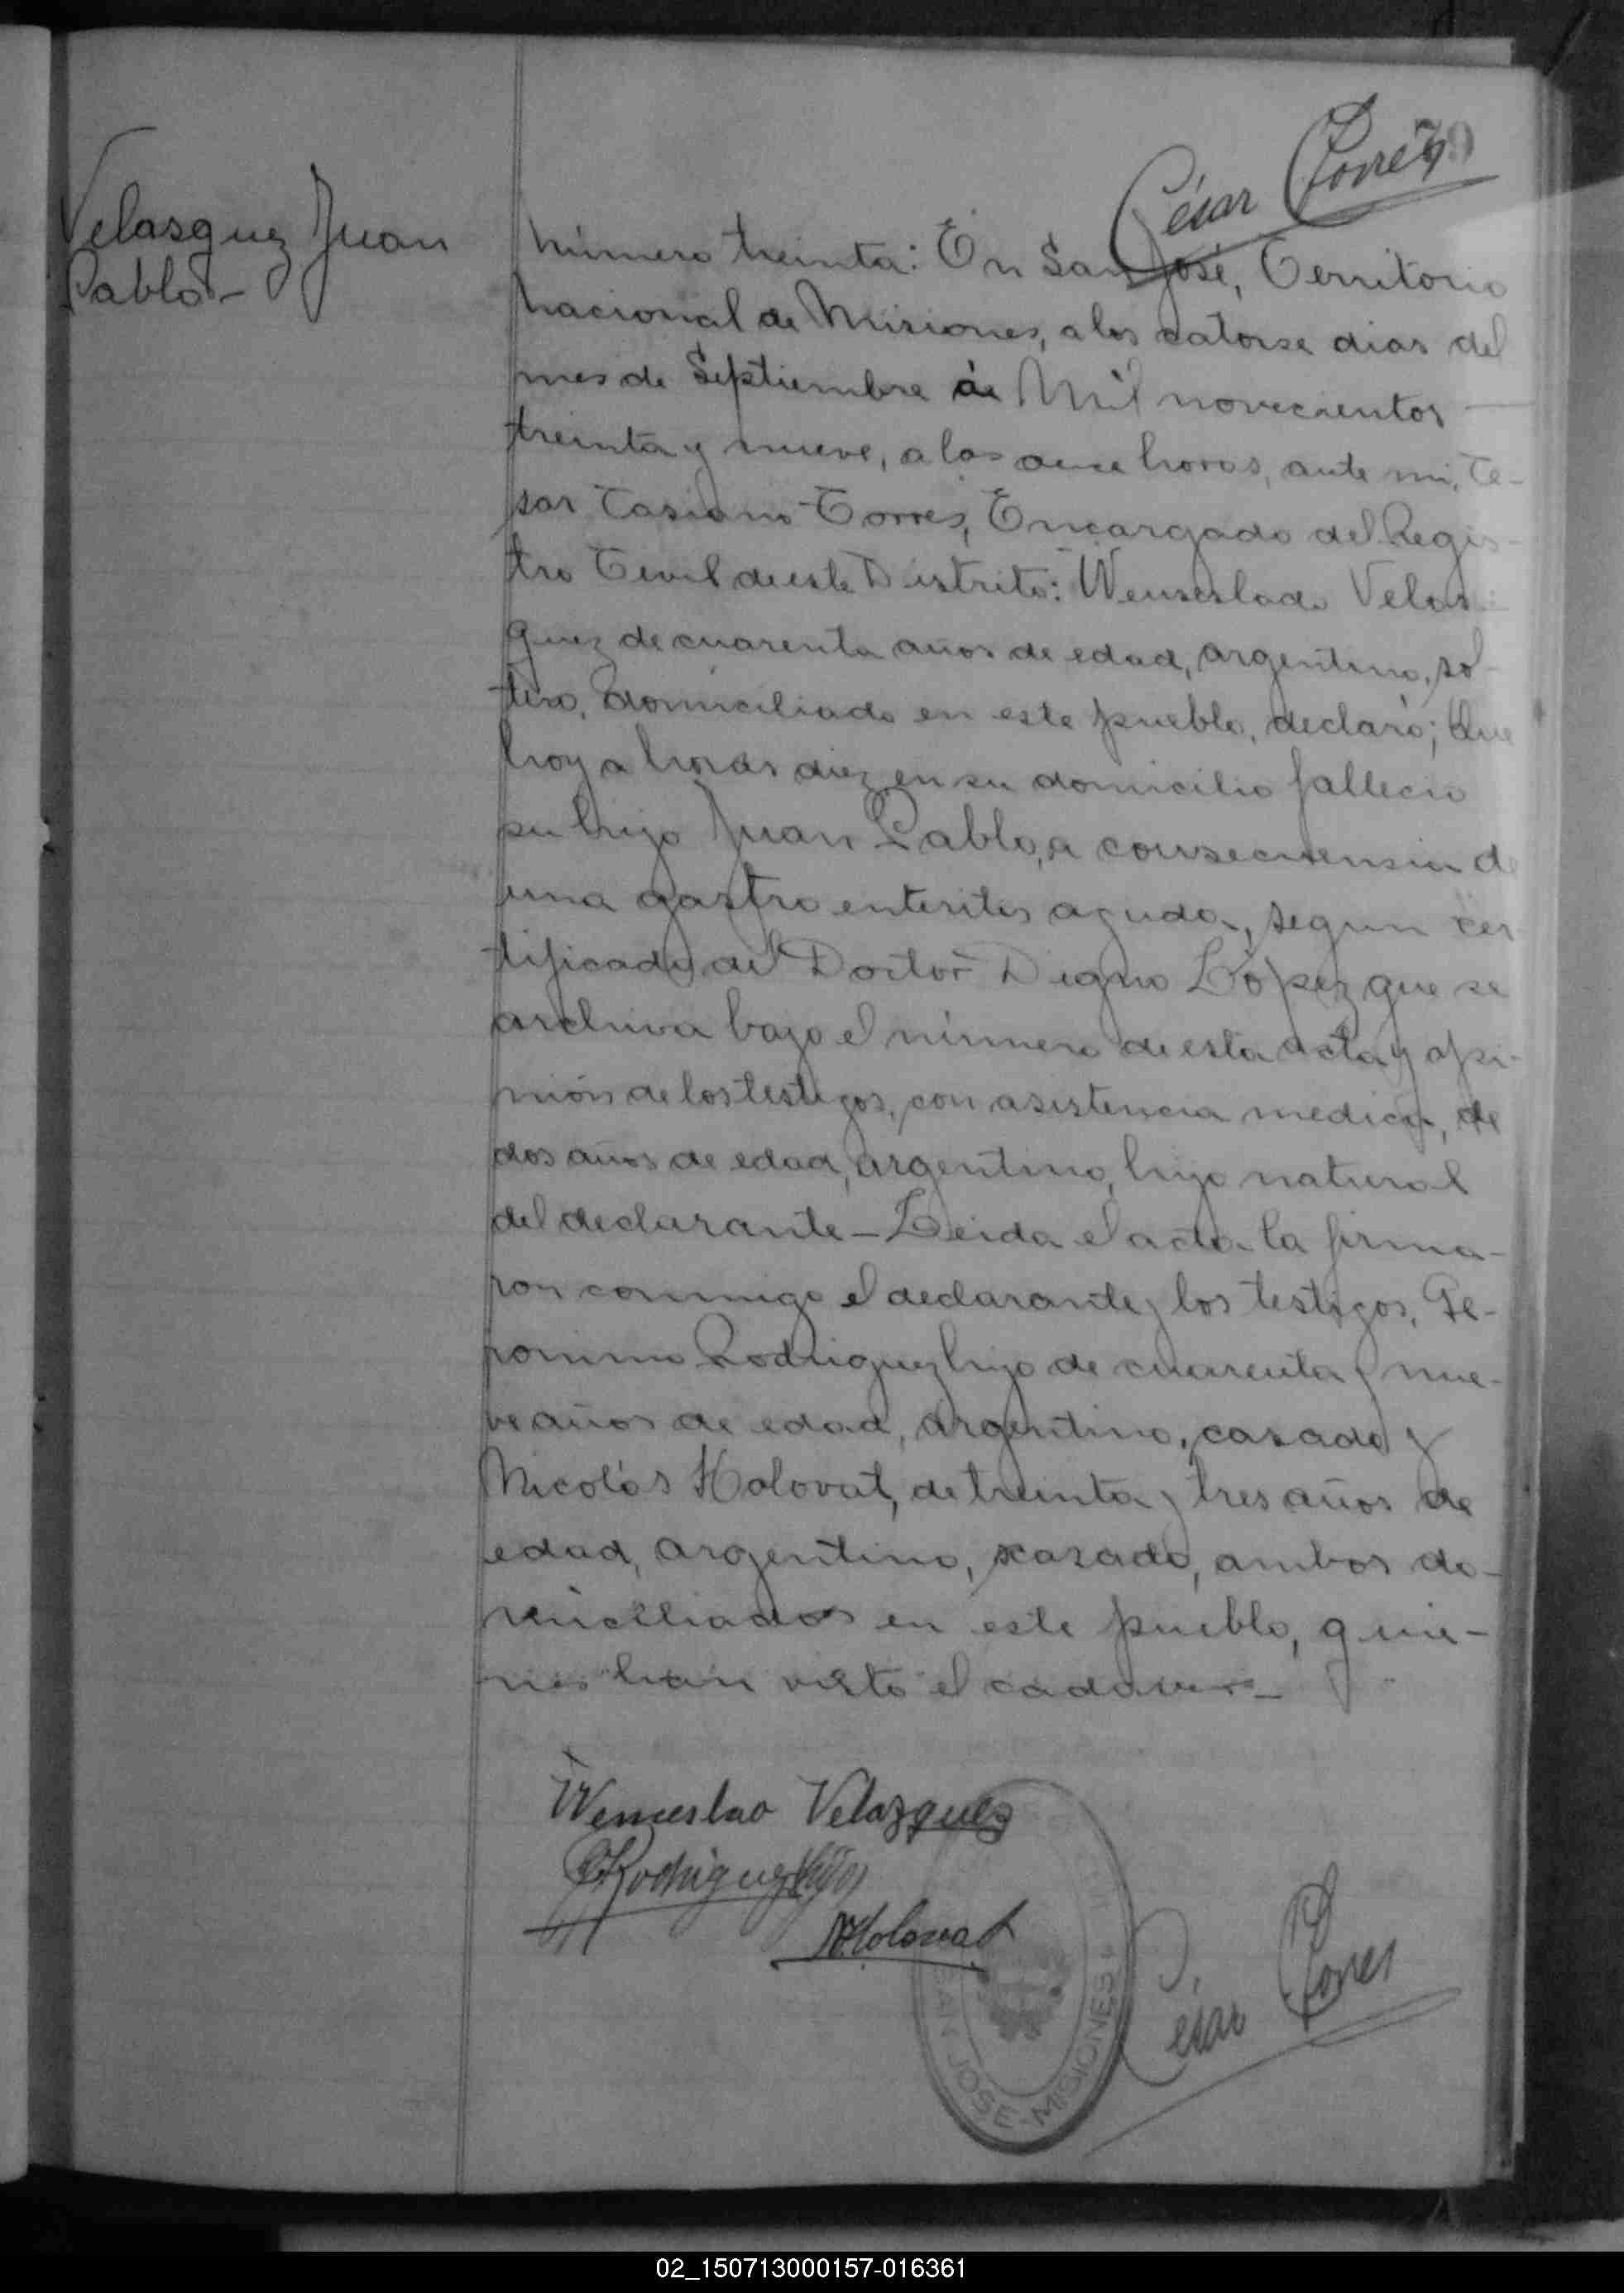 César Torres
Velasquez Juan
Pablo-
Número treinta: En San José, Territorio
Nacional de Misiones, a los catorse dias del
mes de Septiembre de Mil novecientos
treinta y nueve, a las once horas, ante mi, Ce-
sar Casiano Torres, Encargado del Regis-
tro Civil de este Distrito: Wenseslado Velas
quez de cuarenta años de edad, argentino, sol-
tero, domiciliado en este pueblo, declaró; Que
hoy a horas diez en su domicilio fallecio
su hijo Juan Pablo, a consecuensia de
una gastro enteritis aguda, segun cer
tificado del Doctor Digno López que se
archiva bajo el número de esta acta y opi-
nión de los testigos, con asistencia medica, de
dos años de edad, argentino, hijo natural
del declarante - Leida el acta la firma-
ron conmigo el declarante y los testigos, Ge-
ronimo Rodriguez hijo de cuarenta y nue-
ve años de edad, argentino, casado y
Nicolás Holovat, de treinta y tres años de
edad, argentino, casado, ambos do-
miciliados en este pueblo, quie-
nes han visto el cadaver-
Wenceslao Velazquez
GRodriguez (hijo)
NHolovat
César Torres
SAN JOSE - MISIONES
02_150713000157-016361